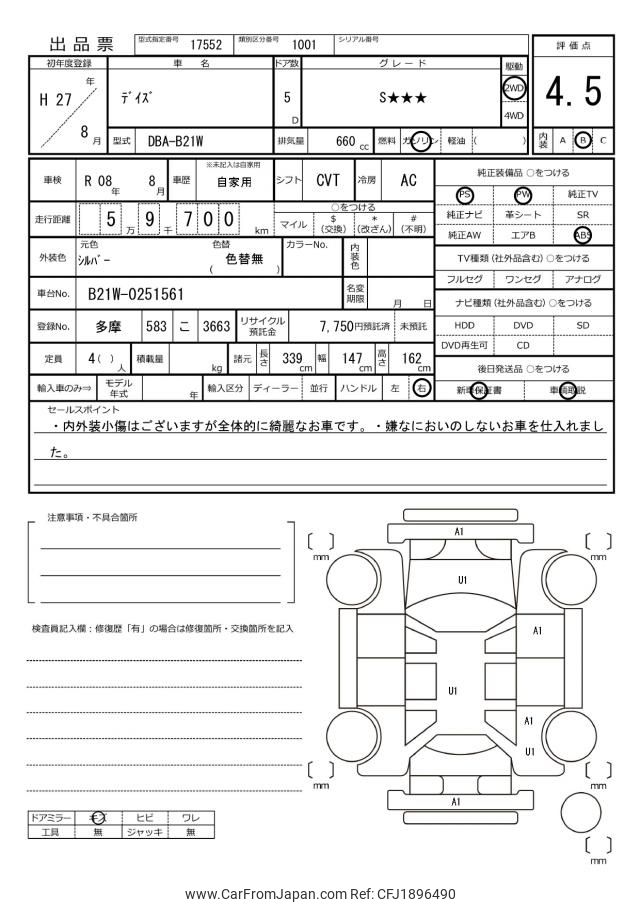 出品票
型式指定番号 17552 類別区分番号 1001 シリアル番号
評価点
4.5
内装 A B C
初年度登録 車名 ドア数 グレード 駆動
H 27 年 ﾃﾞｲｽﾞ 5 D S★★★ 2WD
4WD
8 月 型式 DBA-B21W 排気量 660 cc 燃料 ガソリン 軽油 ( )
車検 R 08 年 8 月 車歴 ※未記入は自家用 自家用 シフト CVT 冷房 AC
走行距離 5 万 9 千 7 0 0 km
○をつける
マイル $ (交換) * (改ざん) # (不明)
外装色 元色 ｼﾙﾊﾞｰ 色替 ( 色替無 ) カラーNo. 内装色
車台No. B21W-0251561 名変期限 月 日
登録No. 多摩 583 こ 3663 リサイクル預託金 7,750円預託済 未預託
定員 4( ) 人 積載量 kg 諸元 長さ 339 cm 幅 147 cm 高さ 162 cm
輸入車のみ⇒ モデル年式 年 輸入区分 ディーラー 並行 ハンドル 左 右
純正装備品 ○をつける
PS PW 純正TV
純正ナビ 革シート SR
純正AW エアB ABS
TV種類 (社外品含む) ○をつける
フルセグ ワンセグ アナログ
ナビ種類 (社外品含む) ○をつける
HDD DVD SD
DVD再生可 CD
後日発送品 ○をつける
新車保証書 車輌取説
セールスポイント
・内外装小傷はございますが全体的に綺麗なお車です。・嫌なにおいのしないお車を仕入れまし
た。
注意事項・不具合箇所
検査員記入欄：修復歴「有」の場合は修復箇所・交換箇所を記入
ドアミラー キズ ヒビ ワレ
工具 無 ジャッキ 無
A1
mm
mm
U1
A1
U1
A1
U1
mm
mm
A1
mm
www.CarFromJapan.com Ref: CFJ1896490